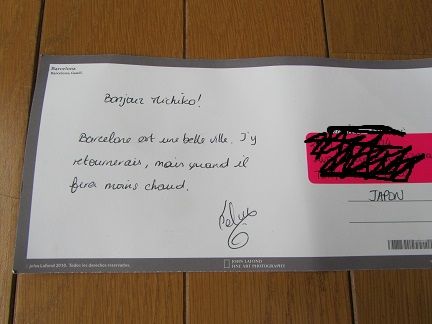 Barcelona
Barcelona, Gaudí
Bonjour Michiko!
Barcelone est une belle ville. J'y
retournerais, mais quand il
fera moins chaud.
JAPON
© John Lafond 2010. Todos los derechos reservados.
JOHN LAFOND
FINE ART PHOTOGRAPHY